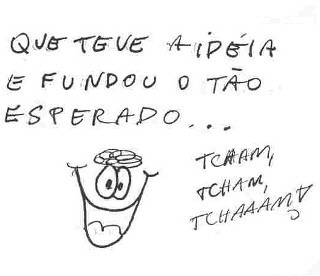 QUE TEVE A IDÉIA
E FUNDOU O TÃO
ESPERADO...
TCHAM,
TCHAM,
TCHAAAM!